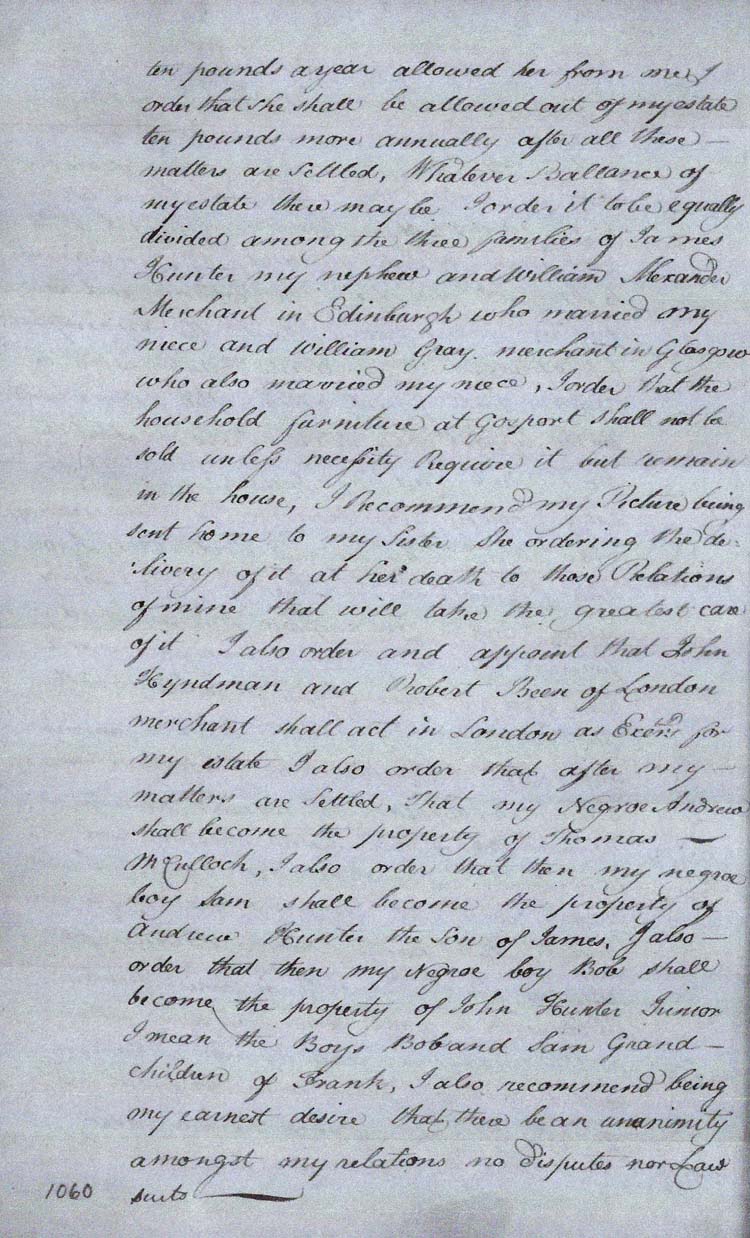 ten pounds a year allowed her from me, I
order that she shall be allowed out of my estate
ten pounds more annually after all these —
matters are Settled, Whatever Ballance of
my estate there may be I order it to be equally
divided among the three families of James
Hunter my nephew and William Alexander
Merchant in Edinburgh who married my
niece and William Gray merchant in Glasgow
who also married my niece, I order that the
household furniture at Gosport shall not be
sold unless necessity Require it but remain
in the house, I Recommend my Picture being
sent home to my Sister She ordering the de-
livery of it at her death to those Relations
of mine that will take the greatest care
of it I also order and appoint that John
Hyndman and Robert Been of London
merchant shall act in London as Exers for
my estate I also order that after my —
matters are Settled, That my Negroe Andrew
shall become the property of Thomas —
McCulloch, I also order that then my negroe
boy Sam shall become the property of
Andrew Hunter the Son of James, I also —
order that then my Negroe boy Bob shall
become the property of John Hunter Junior
I mean the Boys Bob and Sam Grand —
children of Frank, I also recommend being
my earnest desire that there be an unanimity
amongst my relations no disputes nor Law
suits —
1060